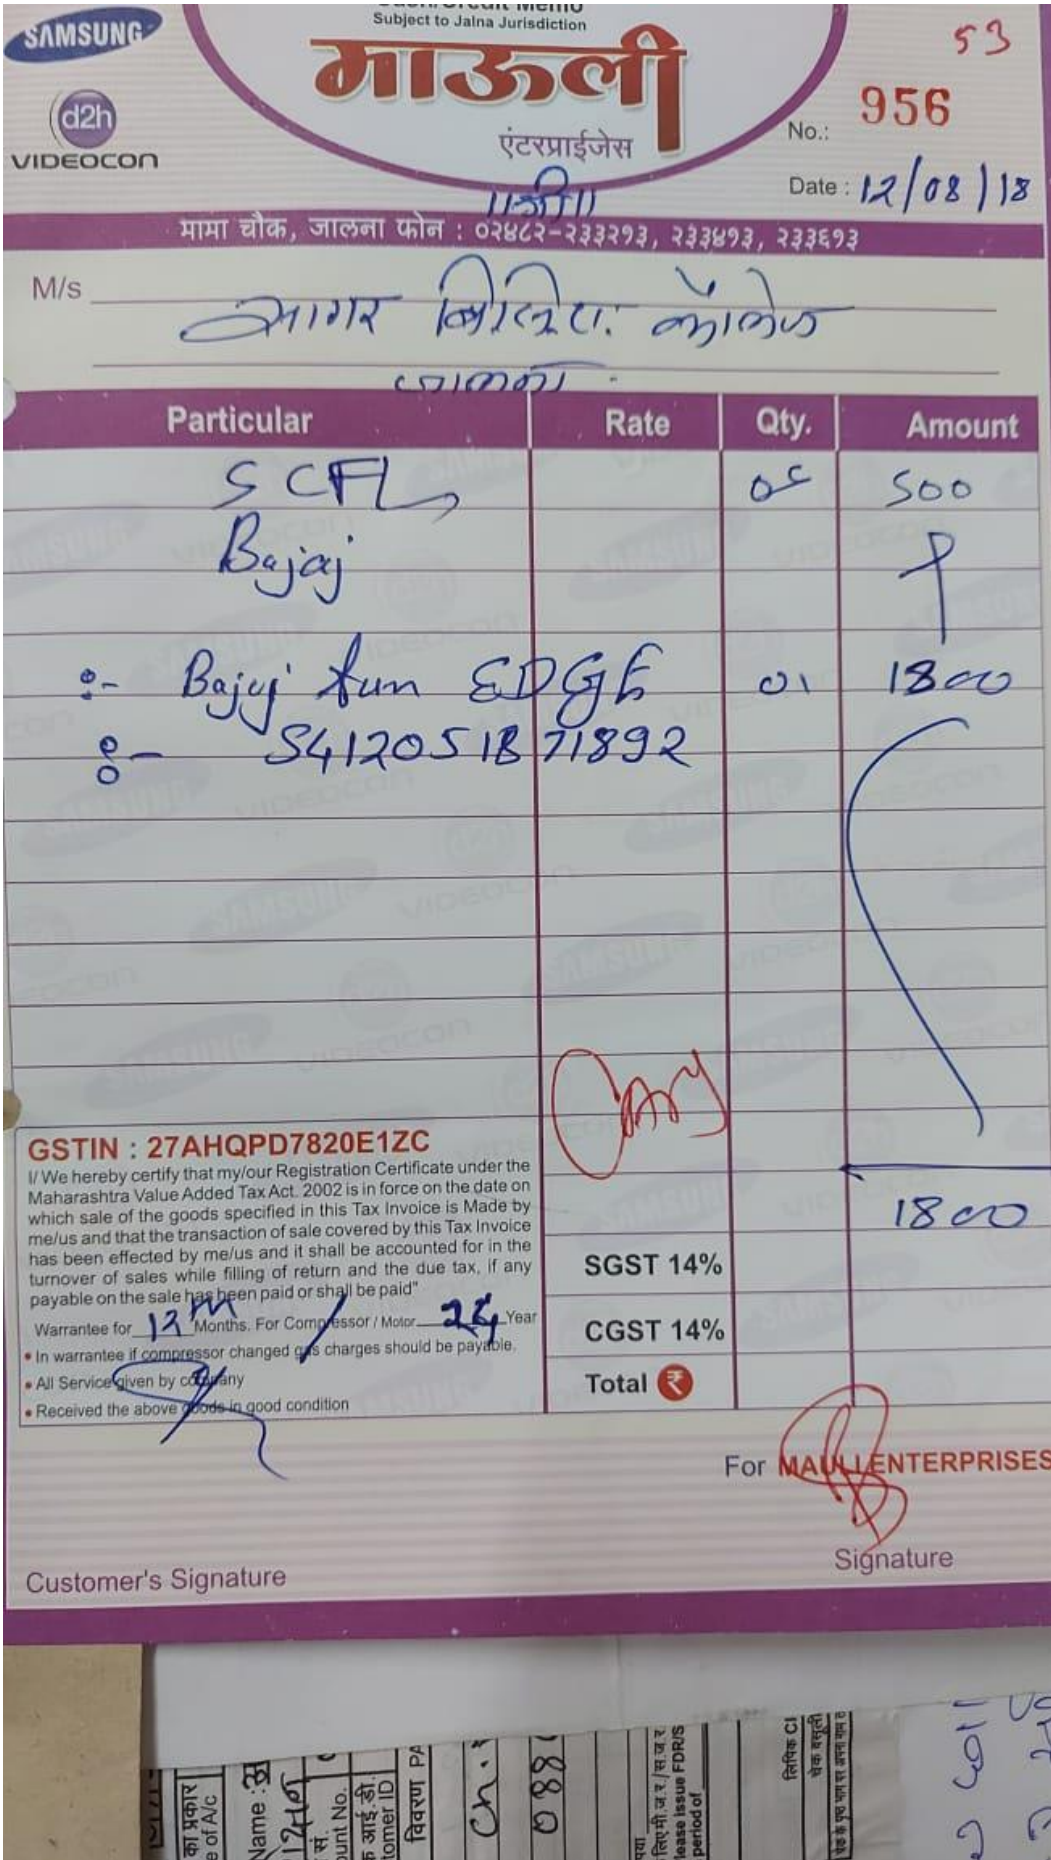 SAMSUNG
Subject to Jalna Jurisdiction
53
माऊली
एंटरप्राईजेस
d2h
VIDEOCON
No.: 956
Date : 12/08/18
॥श्री॥
मामा चौक, जालना फोन : ०२४८२-२३३२१३, २३३४१३, २३३६१३
M/s
कॉलेज
जालना
Particular Rate Qty. Amount
500
Bajaj
:- Bajaj EDGE 01 1800
:- S412051B71892
GSTIN : 27AHQPD7820E1ZC
I/ We hereby certify that my/our Registration Certificate under the
Maharashtra Value Added Tax Act. 2002 is in force on the date on
which sale of the goods specified in this Tax Invoice is Made by
me/us and that the transaction of sale covered by this Tax Invoice
has been effected by me/us and it shall be accounted for in the
turnover of sales while filling of return and the due tax, if any
payable on the sale has been paid or shall be paid"
1800
SGST 14%
Warrantee for 12 m Months. For Compressor / Motor Year
CGST 14%
• In warrantee if compressor changed gas charges should be payable.
• All Service given by company
Total ₹
• Received the above goods in good condition
For MAULI ENTERPRISES
Signature
Customer's Signature
का प्रकार
e of A/c
Name :
सं.
ount No.
क आई.डी.
tomer ID
विवरण PA
Ch.
088
लिए मी.ज.र./स.ज.र
lease issue FDR/S
period of
लिपिक Cl
चेक वसूली